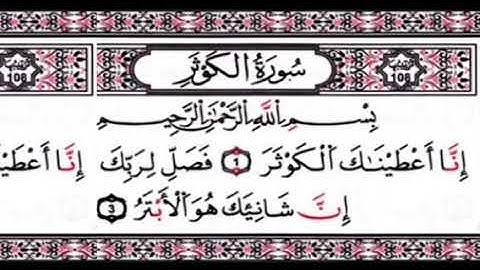 سُورَةُ الكَوْثَرِ
108
108
بِسْمِ اللَّهِ الرَّحْمَٰنِ الرَّحِيمِ
إِنَّا أَعْطَيْنَاكَ الْكَوْثَرَ 1 فَصَلِّ لِرَبِّكَ إِنَّا أَعْطَيْنَ
إِنَّ شَانِئَكَ هُوَ الْأَبْتَرُ 3